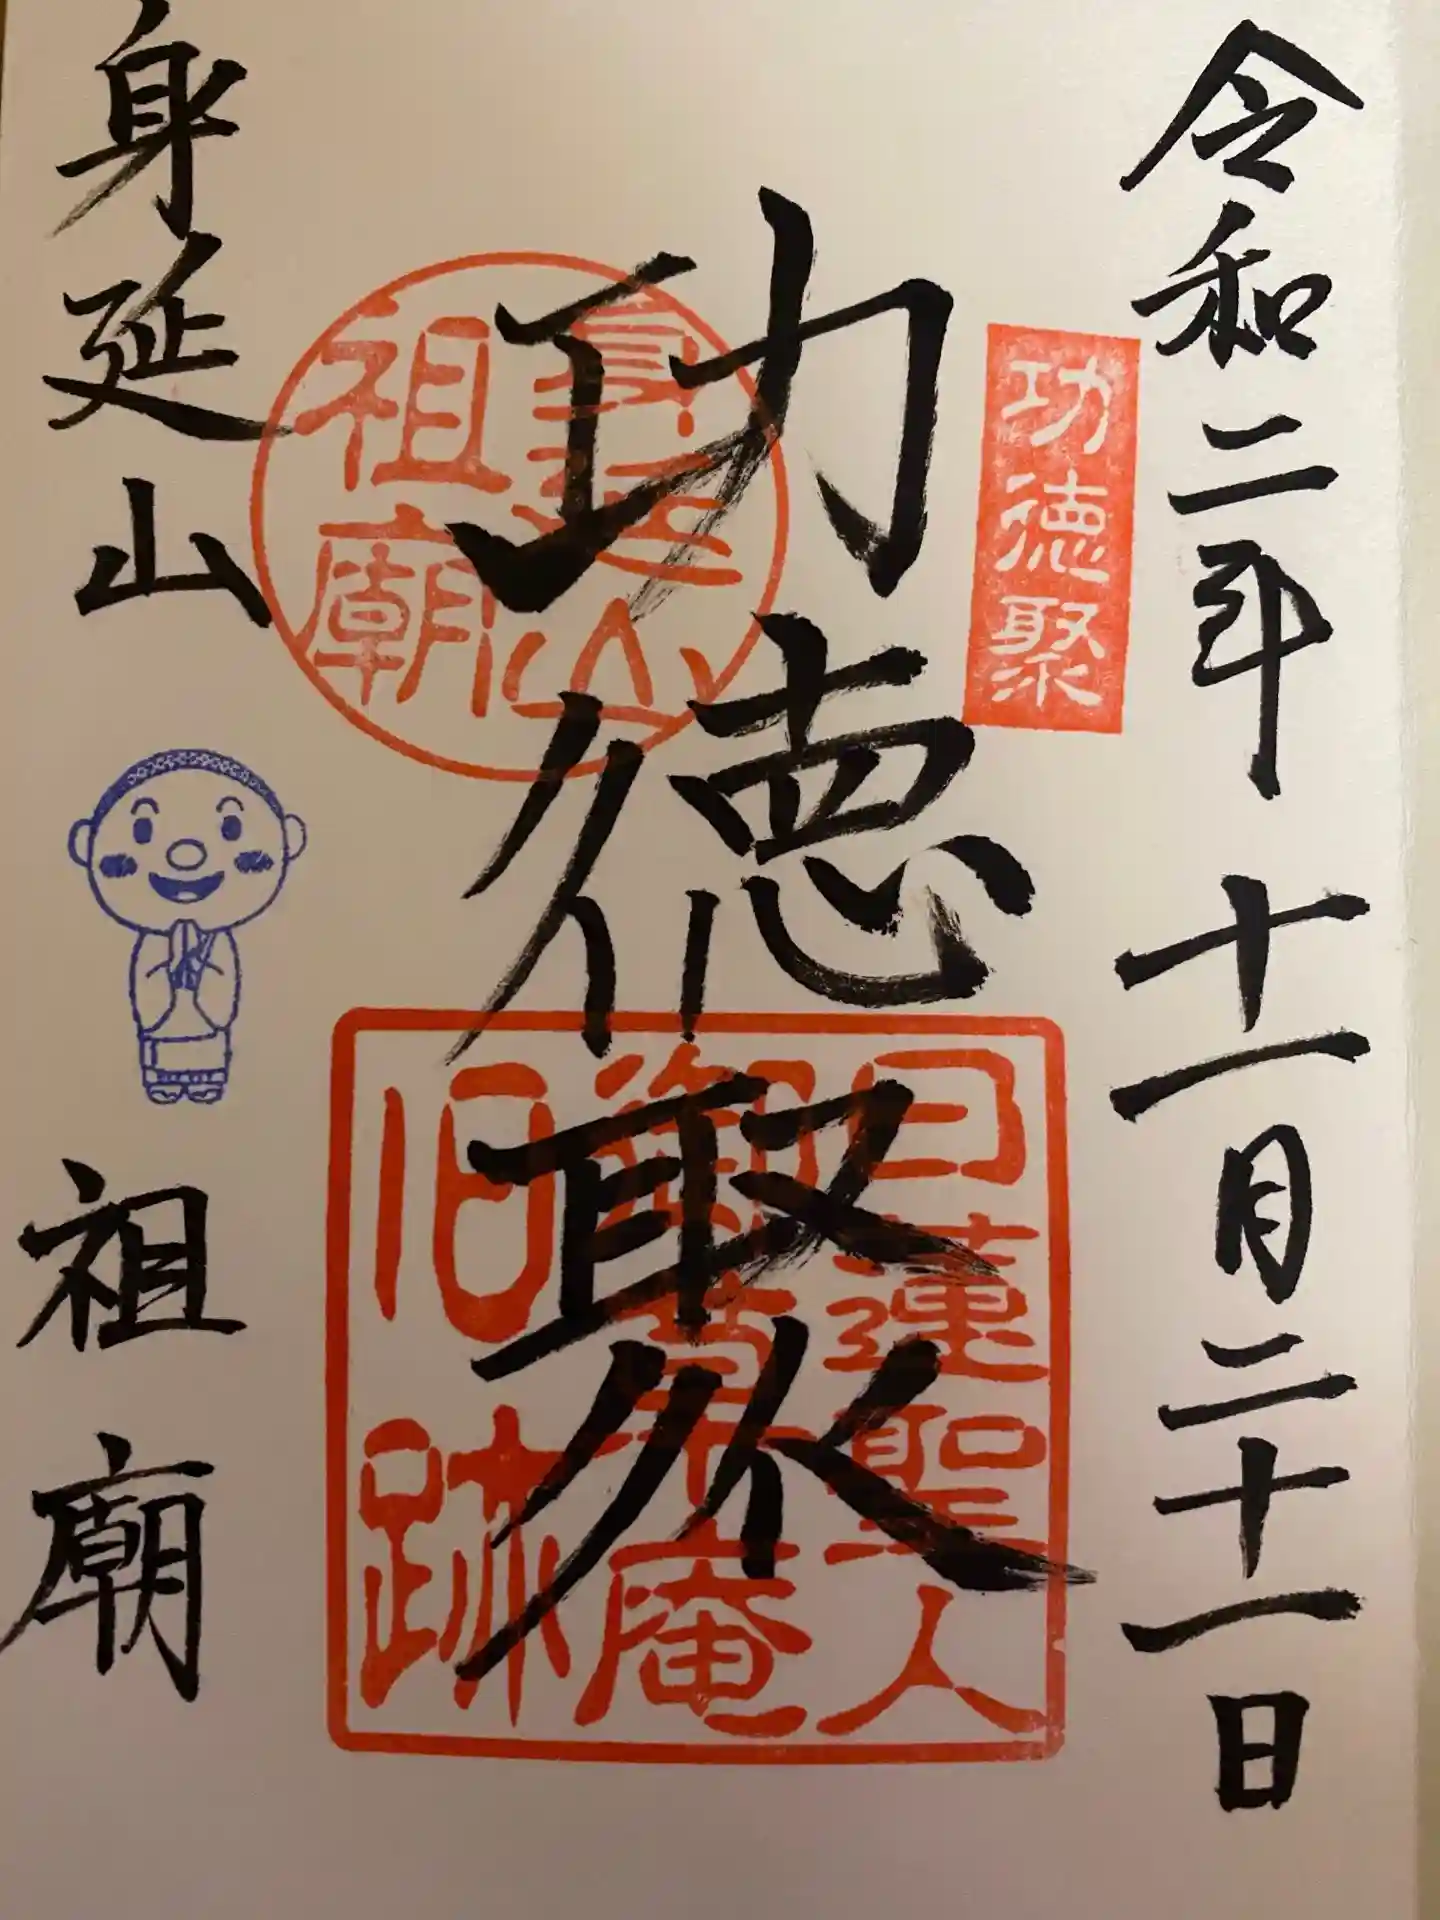 令和二年 十一月二十一日
功徳聚
功徳聚
身延山
祖廟
日蓮聖人
御草庵
旧跡
身延山 祖廟